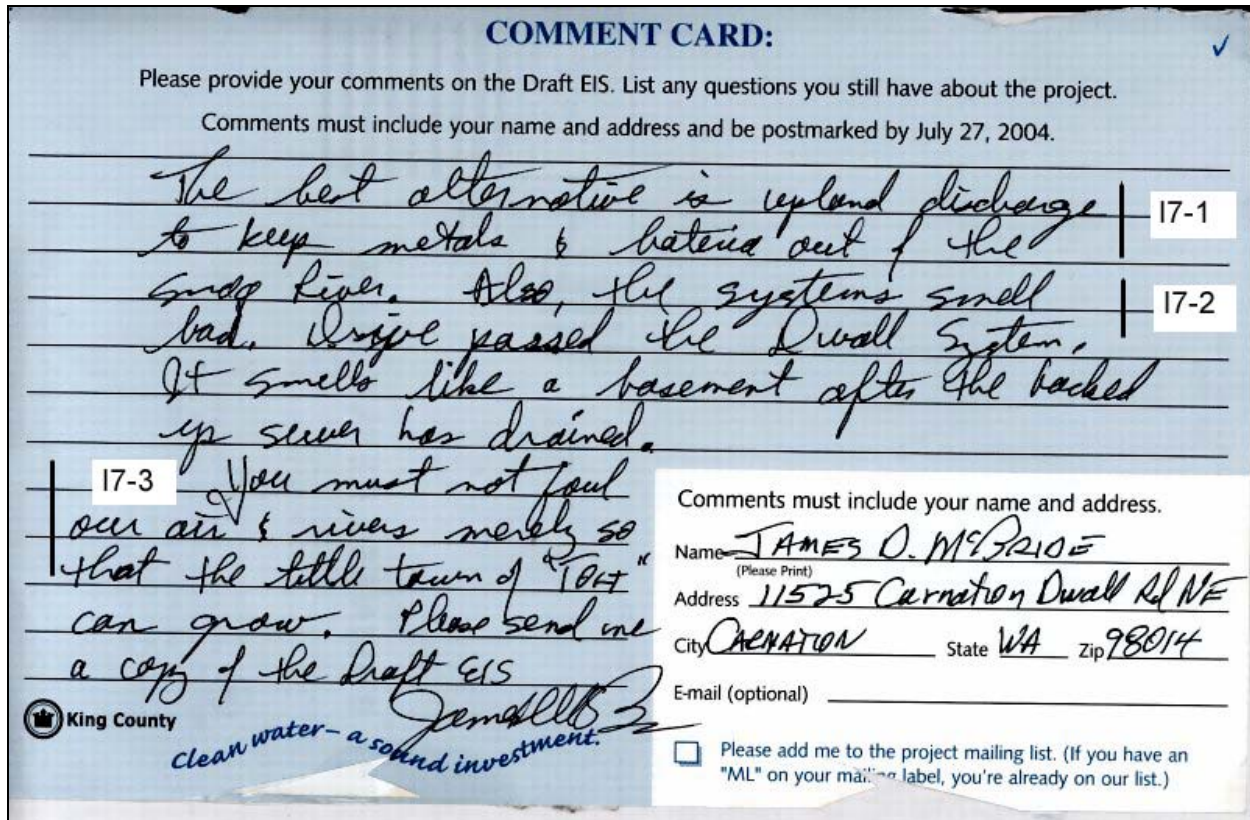 COMMENT CARD:
✓
Please provide your comments on the Draft EIS. List any questions you still have about the project.
Comments must include your name and address and be postmarked by July 27, 2004.
The best alternative is upland discharge
I7-1
to keep metals & bateria out of the
Snoq River. Also, the systems smell
I7-2
bad. Drive passed the Duvall System.
It smells like a basement after the backed
up sewer has drained.
I7-3
You must not foul
our air & rivers merely so
that the little town of "Tolt"
can grow. Please send me
a copy of the Draft EIS
King County
Clean water – a sound investment.
Comments must include your name and address.
Name JAMES D. McBRIDE
(Please Print)
Address 11525 Carnation Duvall Rd NE
City CARNATION State WA Zip 98014
E-mail (optional)
Please add me to the project mailing list. (If you have an
"ML" on your mailing label, you're already on our list.)